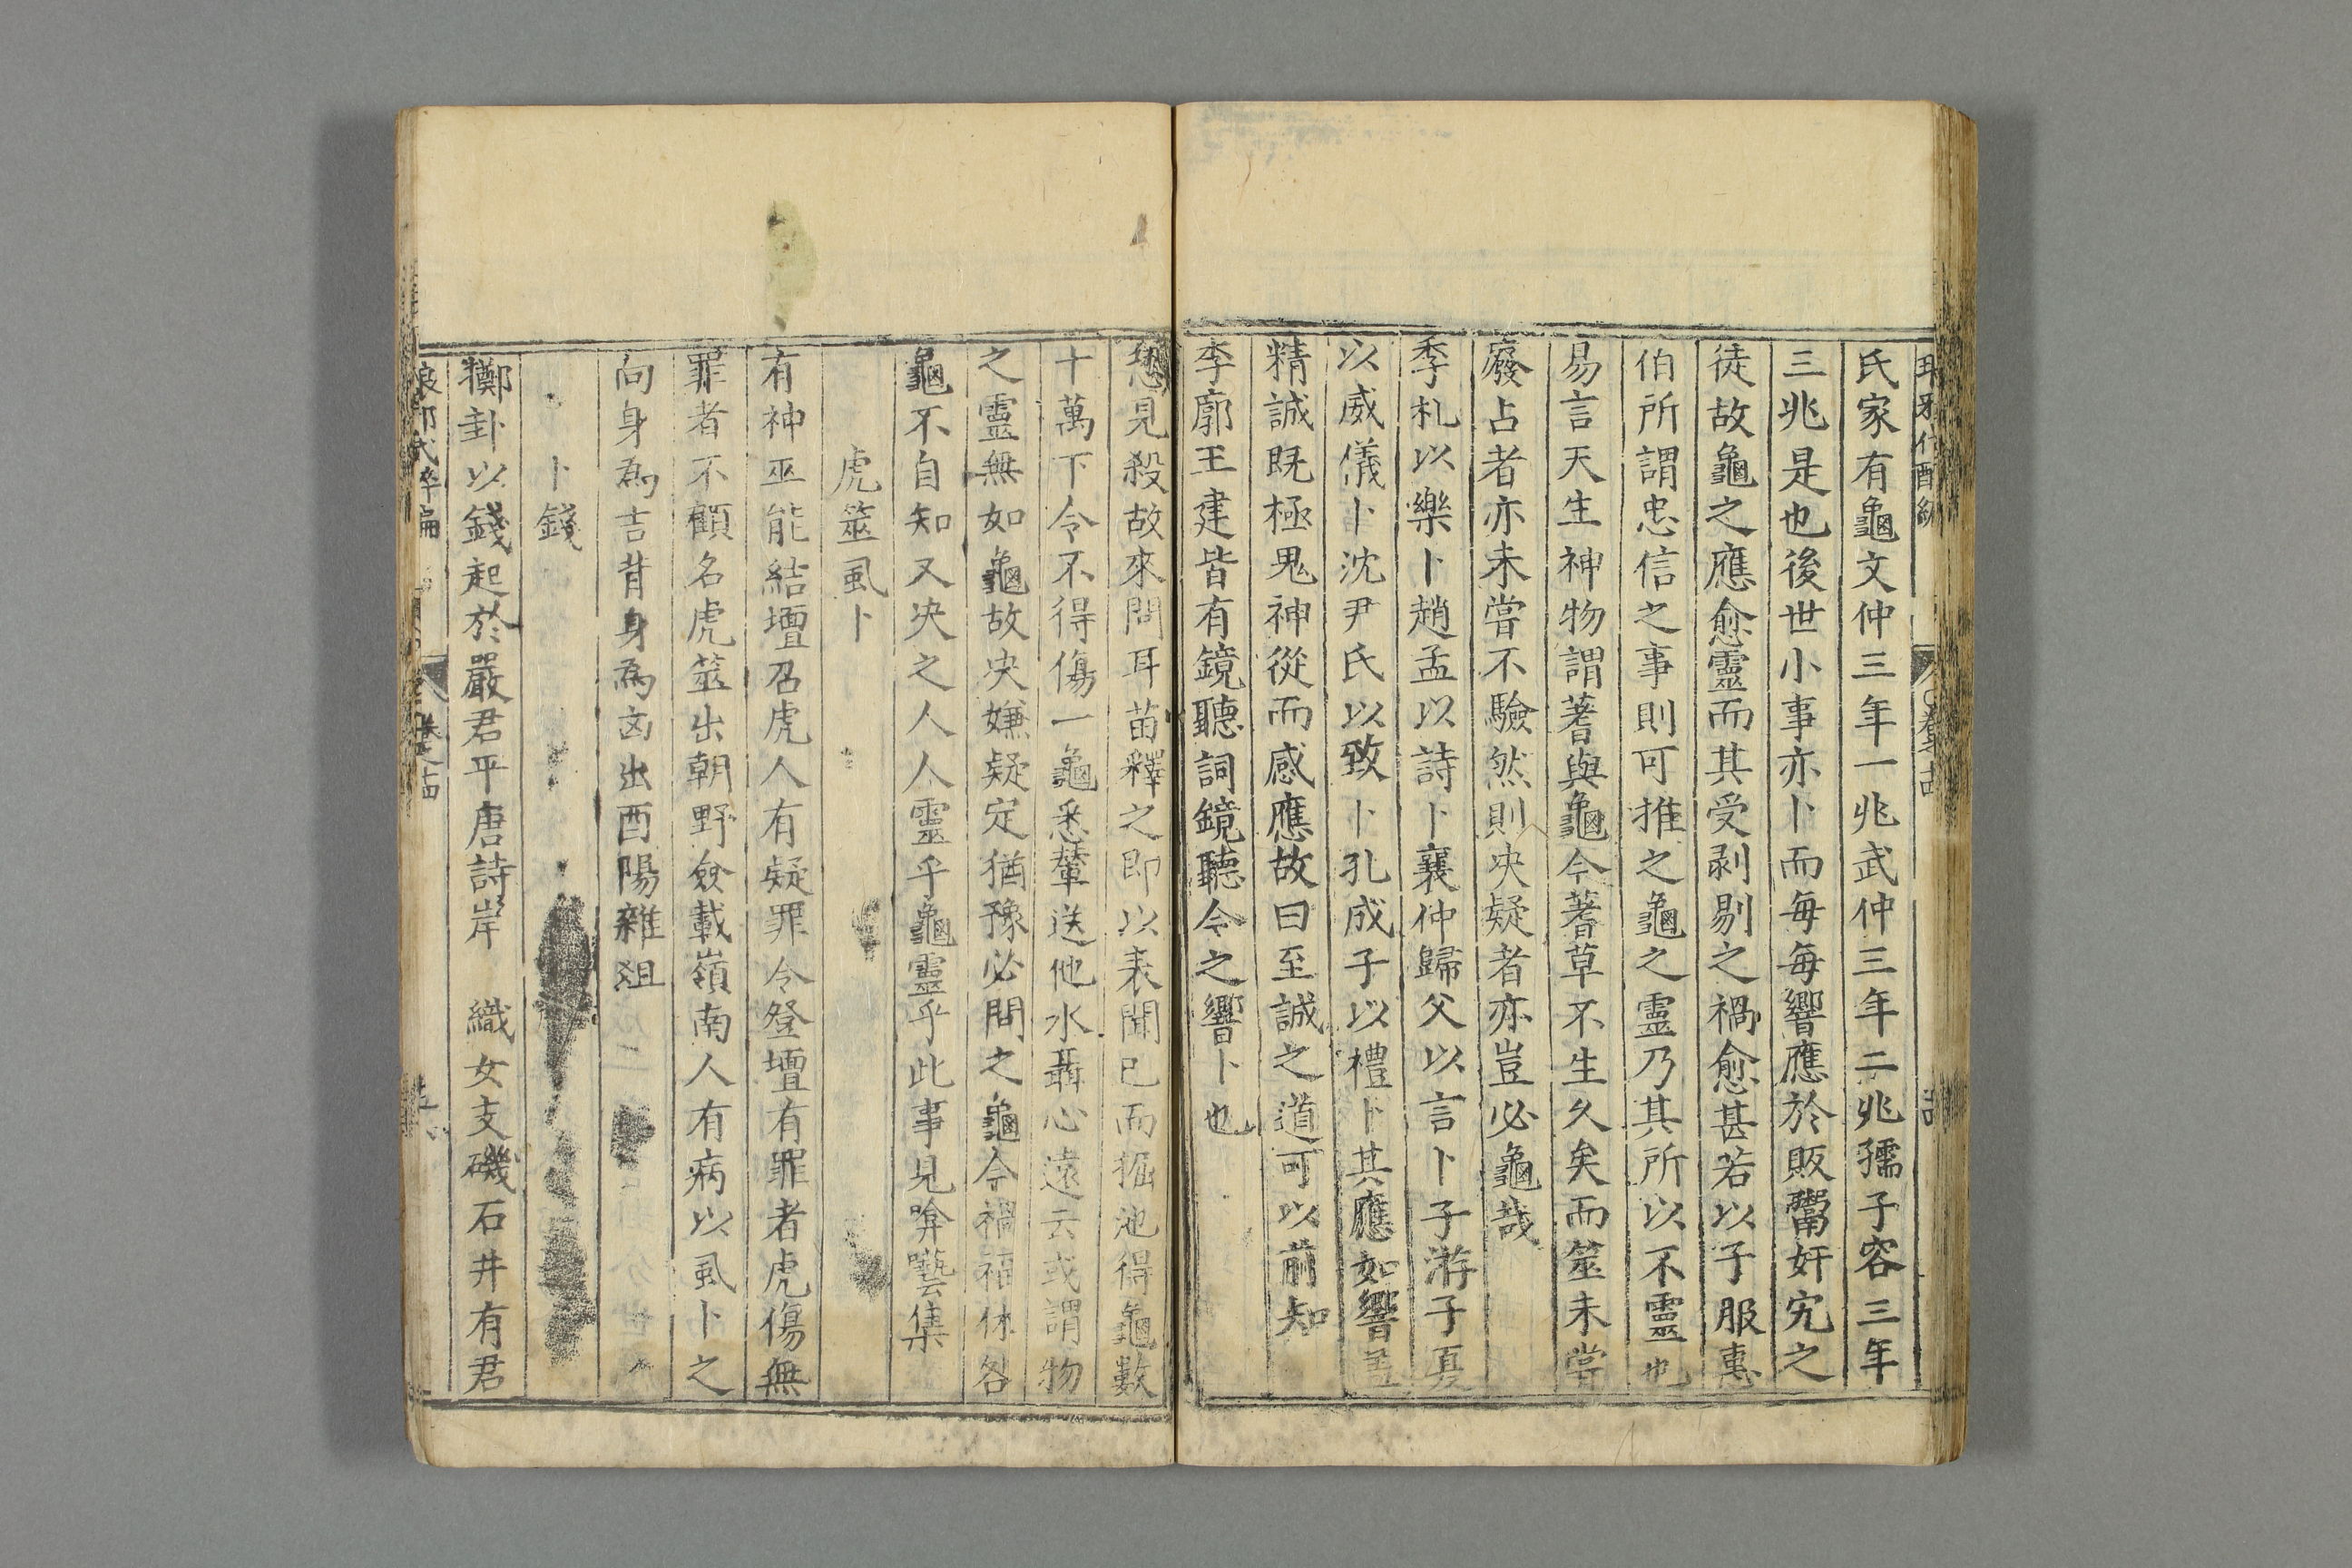 氏家有龜文仲三年一兆武仲三年二兆孺子容三年
三兆是也後世小事亦卜而每每響應於販鬻奸宄之
徒故龜之應愈靈而其受剥剔之禍愈甚若以子服惠
伯所謂忠信之事則可推之龜之靈乃其所以不靈也
易言天生神物謂蓍與龜今蓍草不生久矣而筮未嘗
廢占者亦未嘗不驗然則决疑者亦豈必龜哉
季札以樂卜趙孟以詩卜襄仲歸父以言卜子游子夏
以威儀卜沈尹氏以致卜孔成子以禮卜其應如響盖
精誠既極鬼神從而感應故曰至誠之道可以前知
李廓王建皆有鏡聽詞鏡聽今之響卜也
愬見殺故來問耳苗釋之即以表聞已而掘池得龜數
十萬下令不得傷一龜悉輦送他水聶心遠云或謂物
之靈無如龜故决嫌疑定猶豫必問之龜今禍福休咎
龜不自知又决之人人靈乎龜靈乎此事見噲囈集
虎筮虱卜
有神巫能結壇召虎人有疑罪令登壇有罪者虎傷無
罪者不顧名虎筮出朝野僉載嶺南人有病以虱卜之
向身為吉背身為㐫出酉陽雜俎
卜錢
擲卦以錢起於嚴君平唐詩岸 織女支磯石井有君